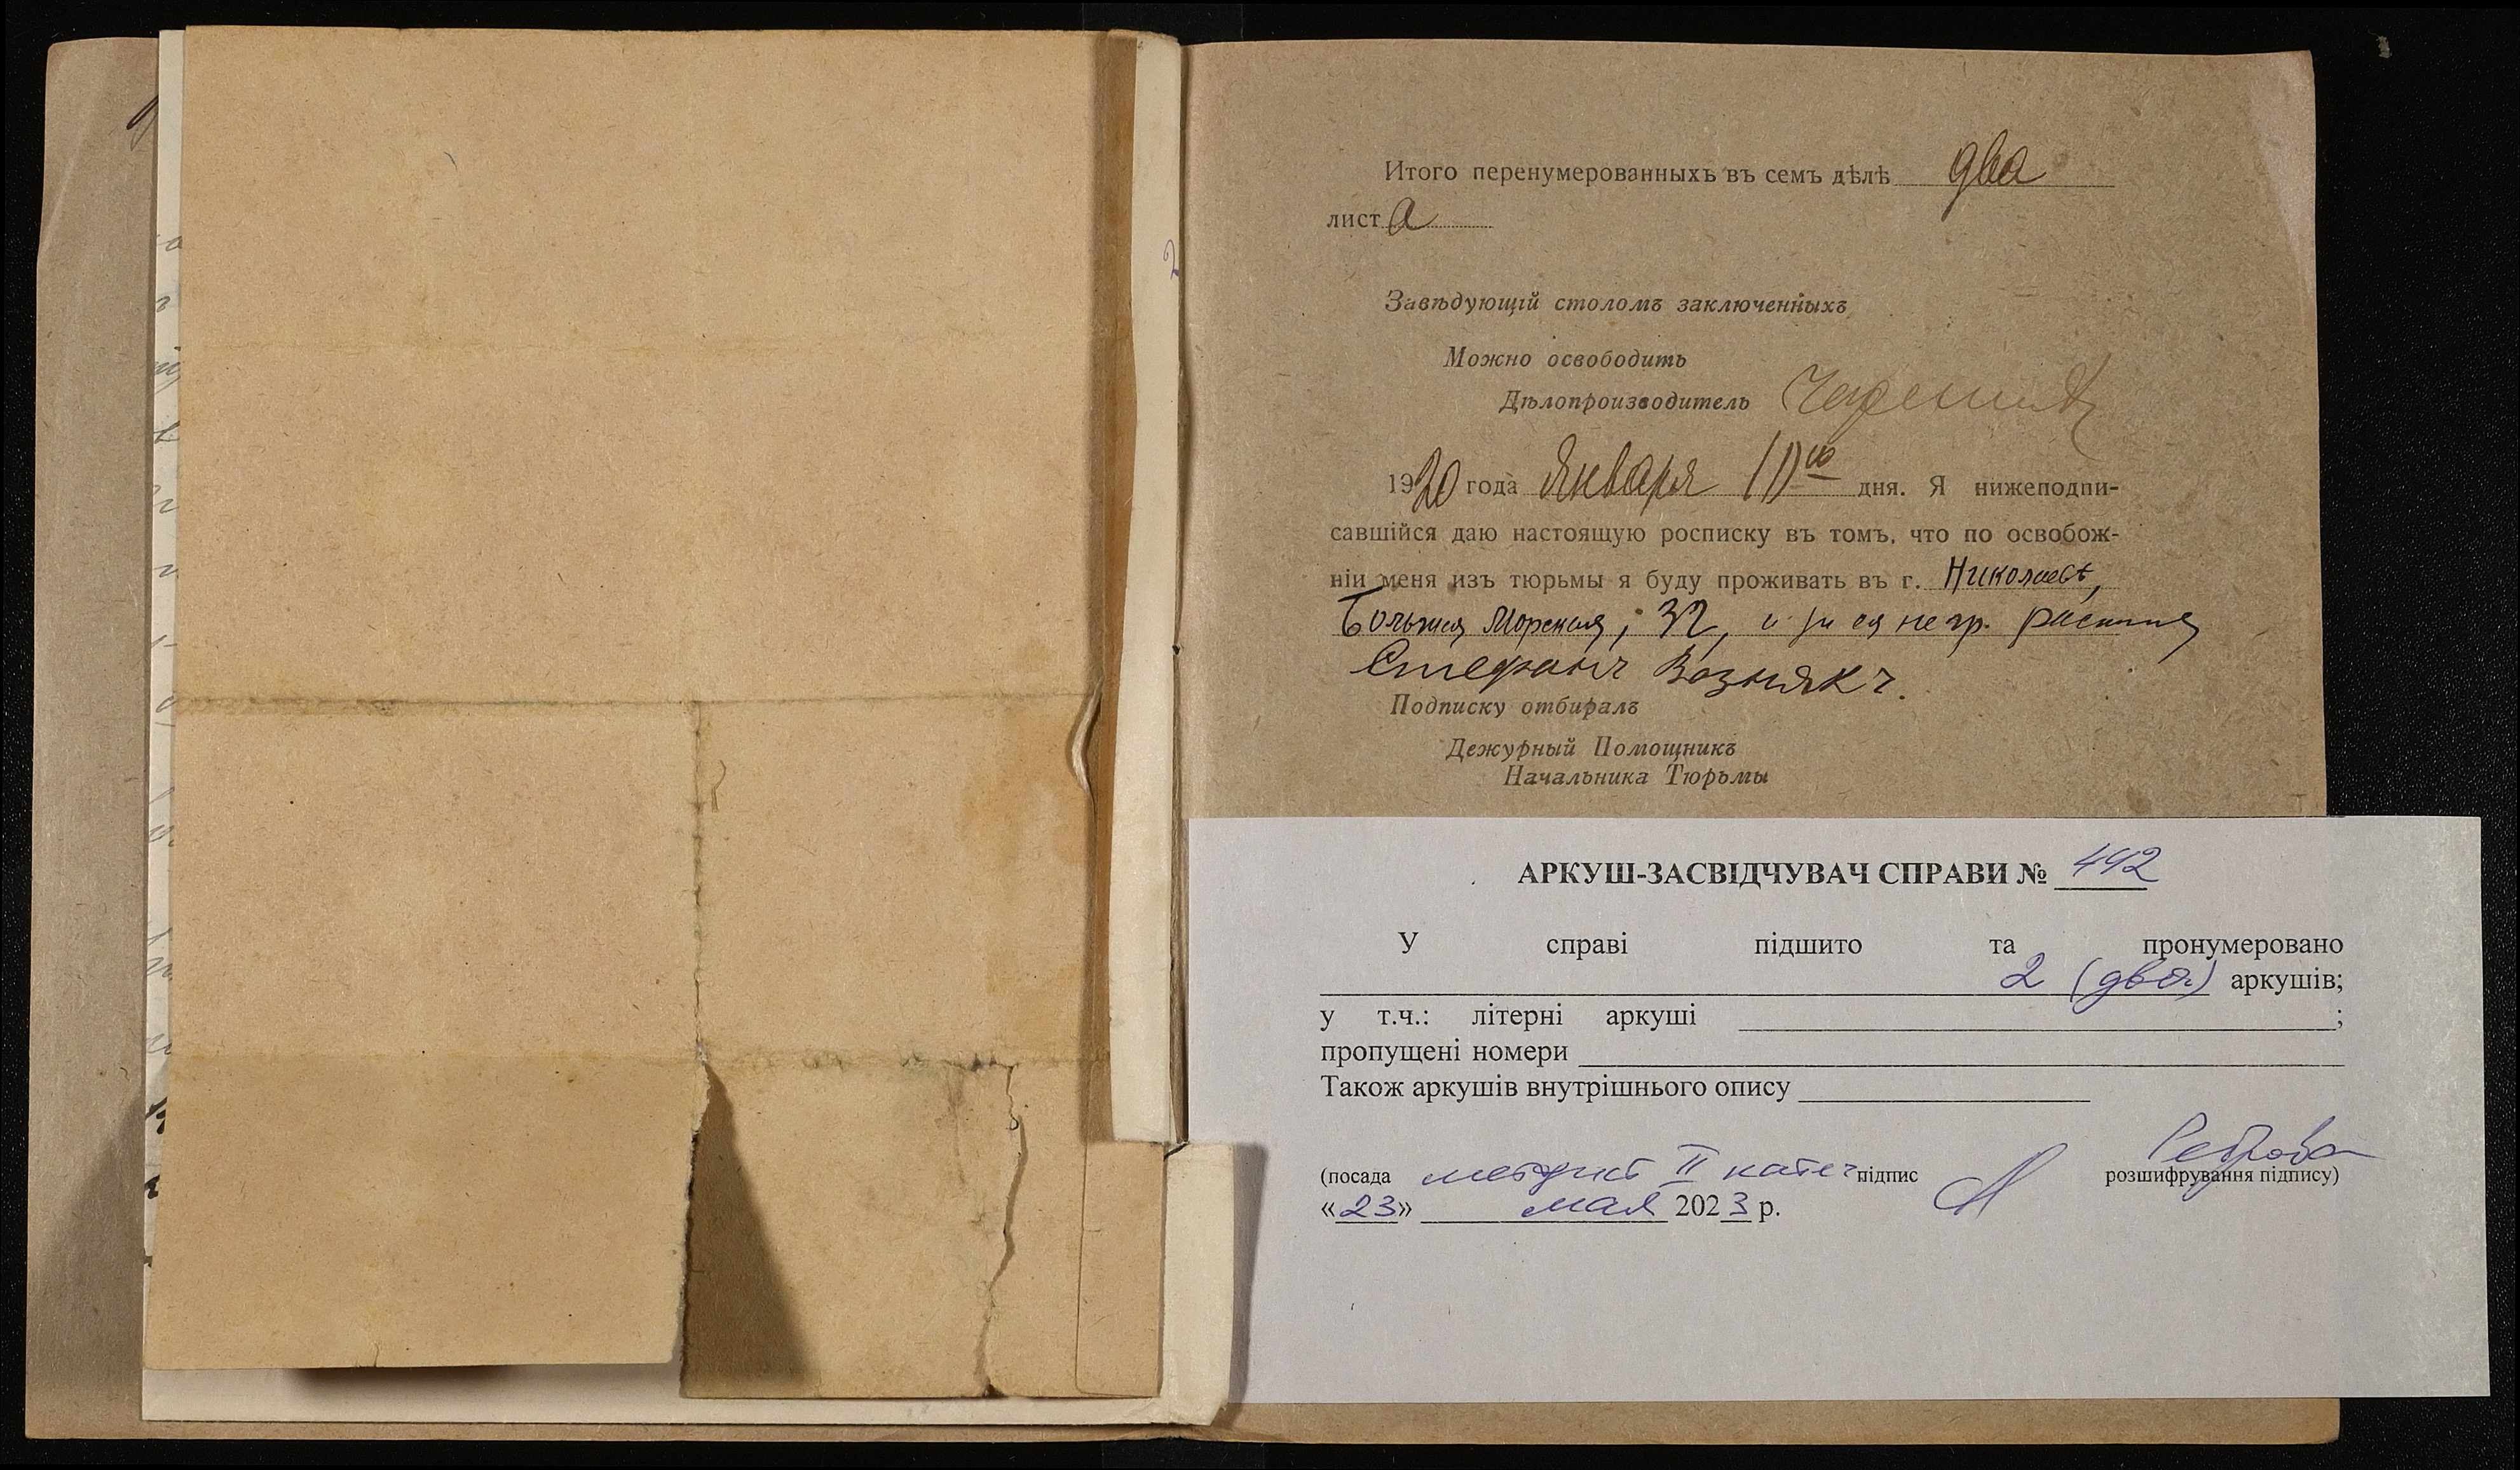 Итого перенумерованныхъ въ семъ дѣлѣ два
листа
Завѣдующій столомъ заключенныхъ
Можно освободить
Дѣлопроизводитель
1920 года Января дня. Я нижеподпи-
савшійся даю настоящую росписку въ томъ, что по освобож-
ніи меня изъ тюрьмы я буду проживать въ г. Николаевѣ,
Большая Морская, 32,
Стефанъ Вознякъ.
Подписку отбиралъ
Дежурный Помощникъ
Начальника Тюрьмы
2
АРКУШ-ЗАСВІДЧУВАЧ СПРАВИ № 492
У справі підшито та пронумеровано
2 (два) аркушів;
у т.ч.: літерні аркуші ;
пропущені номери
Також аркушів внутрішнього опису
(посада методист II катег підпис розшифрування підпису)
«23» мая 2023 р.